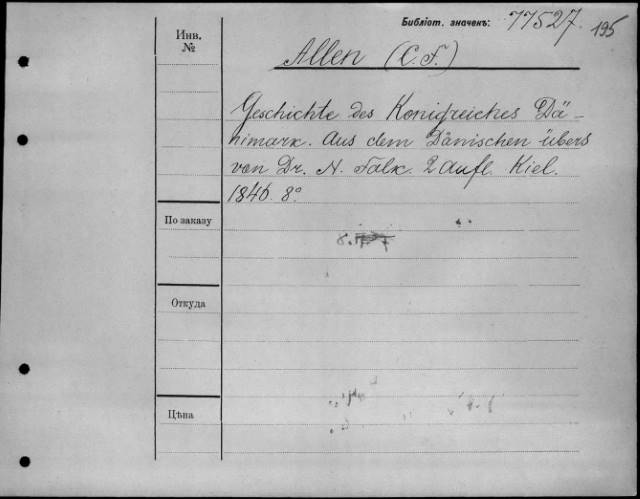 Библіот. значекъ: 77527. 195
Инв.
№
Allen (C. F.)
Geschichte des Konigreiches Dä-
nimark. Aus dem Dänischen übers
von Dr. N. Falk. 2 Aufl. Kiel.
1846. 8°
По заказу
Откуда
Цѣна